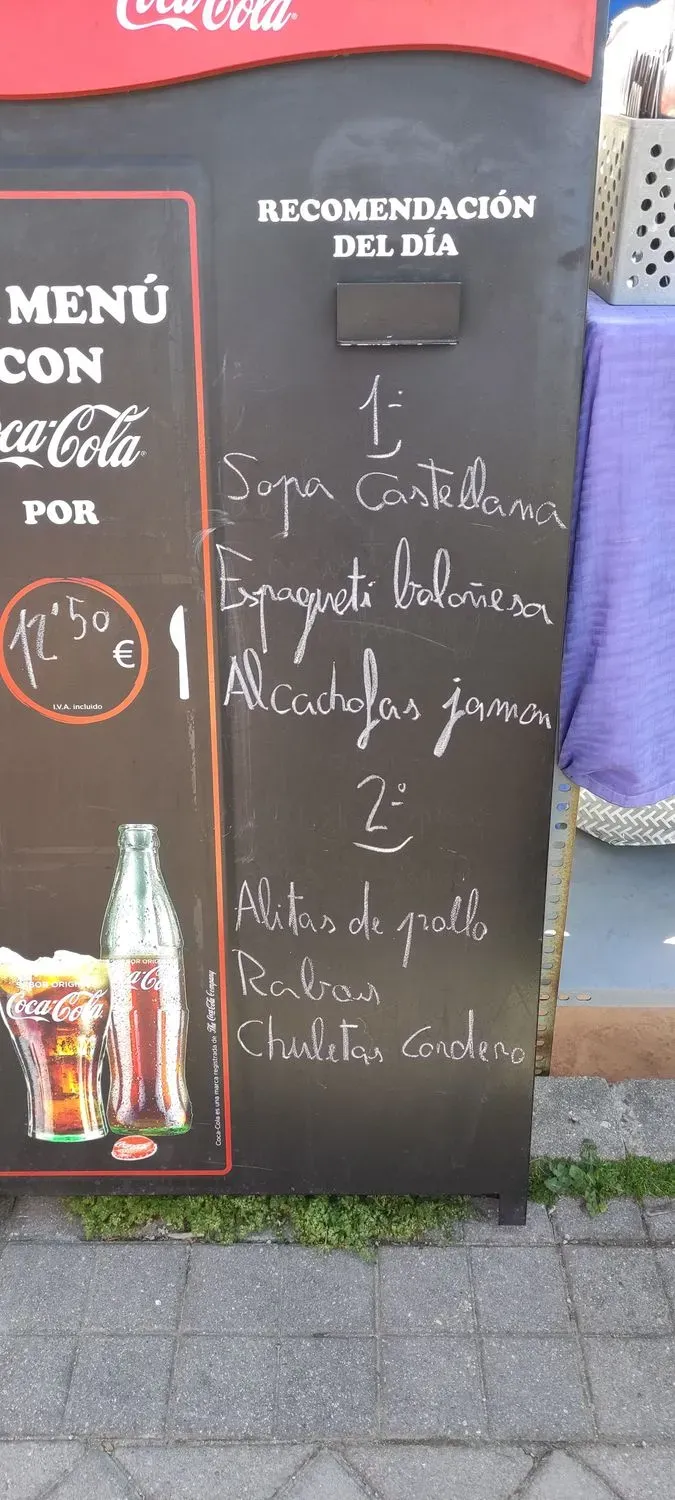 Coca-Cola
MENÚ
CON
Coca-Cola
POR
12'50 €
I.V.A. incluido
SABOR ORIGINAL
Coca-Cola
SABOR ORIGINAL
Coca-Cola
Coca-Cola es una marca registrada de The Coca-Cola Company
RECOMENDACIÓN
DEL DÍA
1º
Sopa Castellana
Espagueti boloñesa
Alcachofas jamon
2º
Alitas de pollo
Rabas
Chuletas Cordero